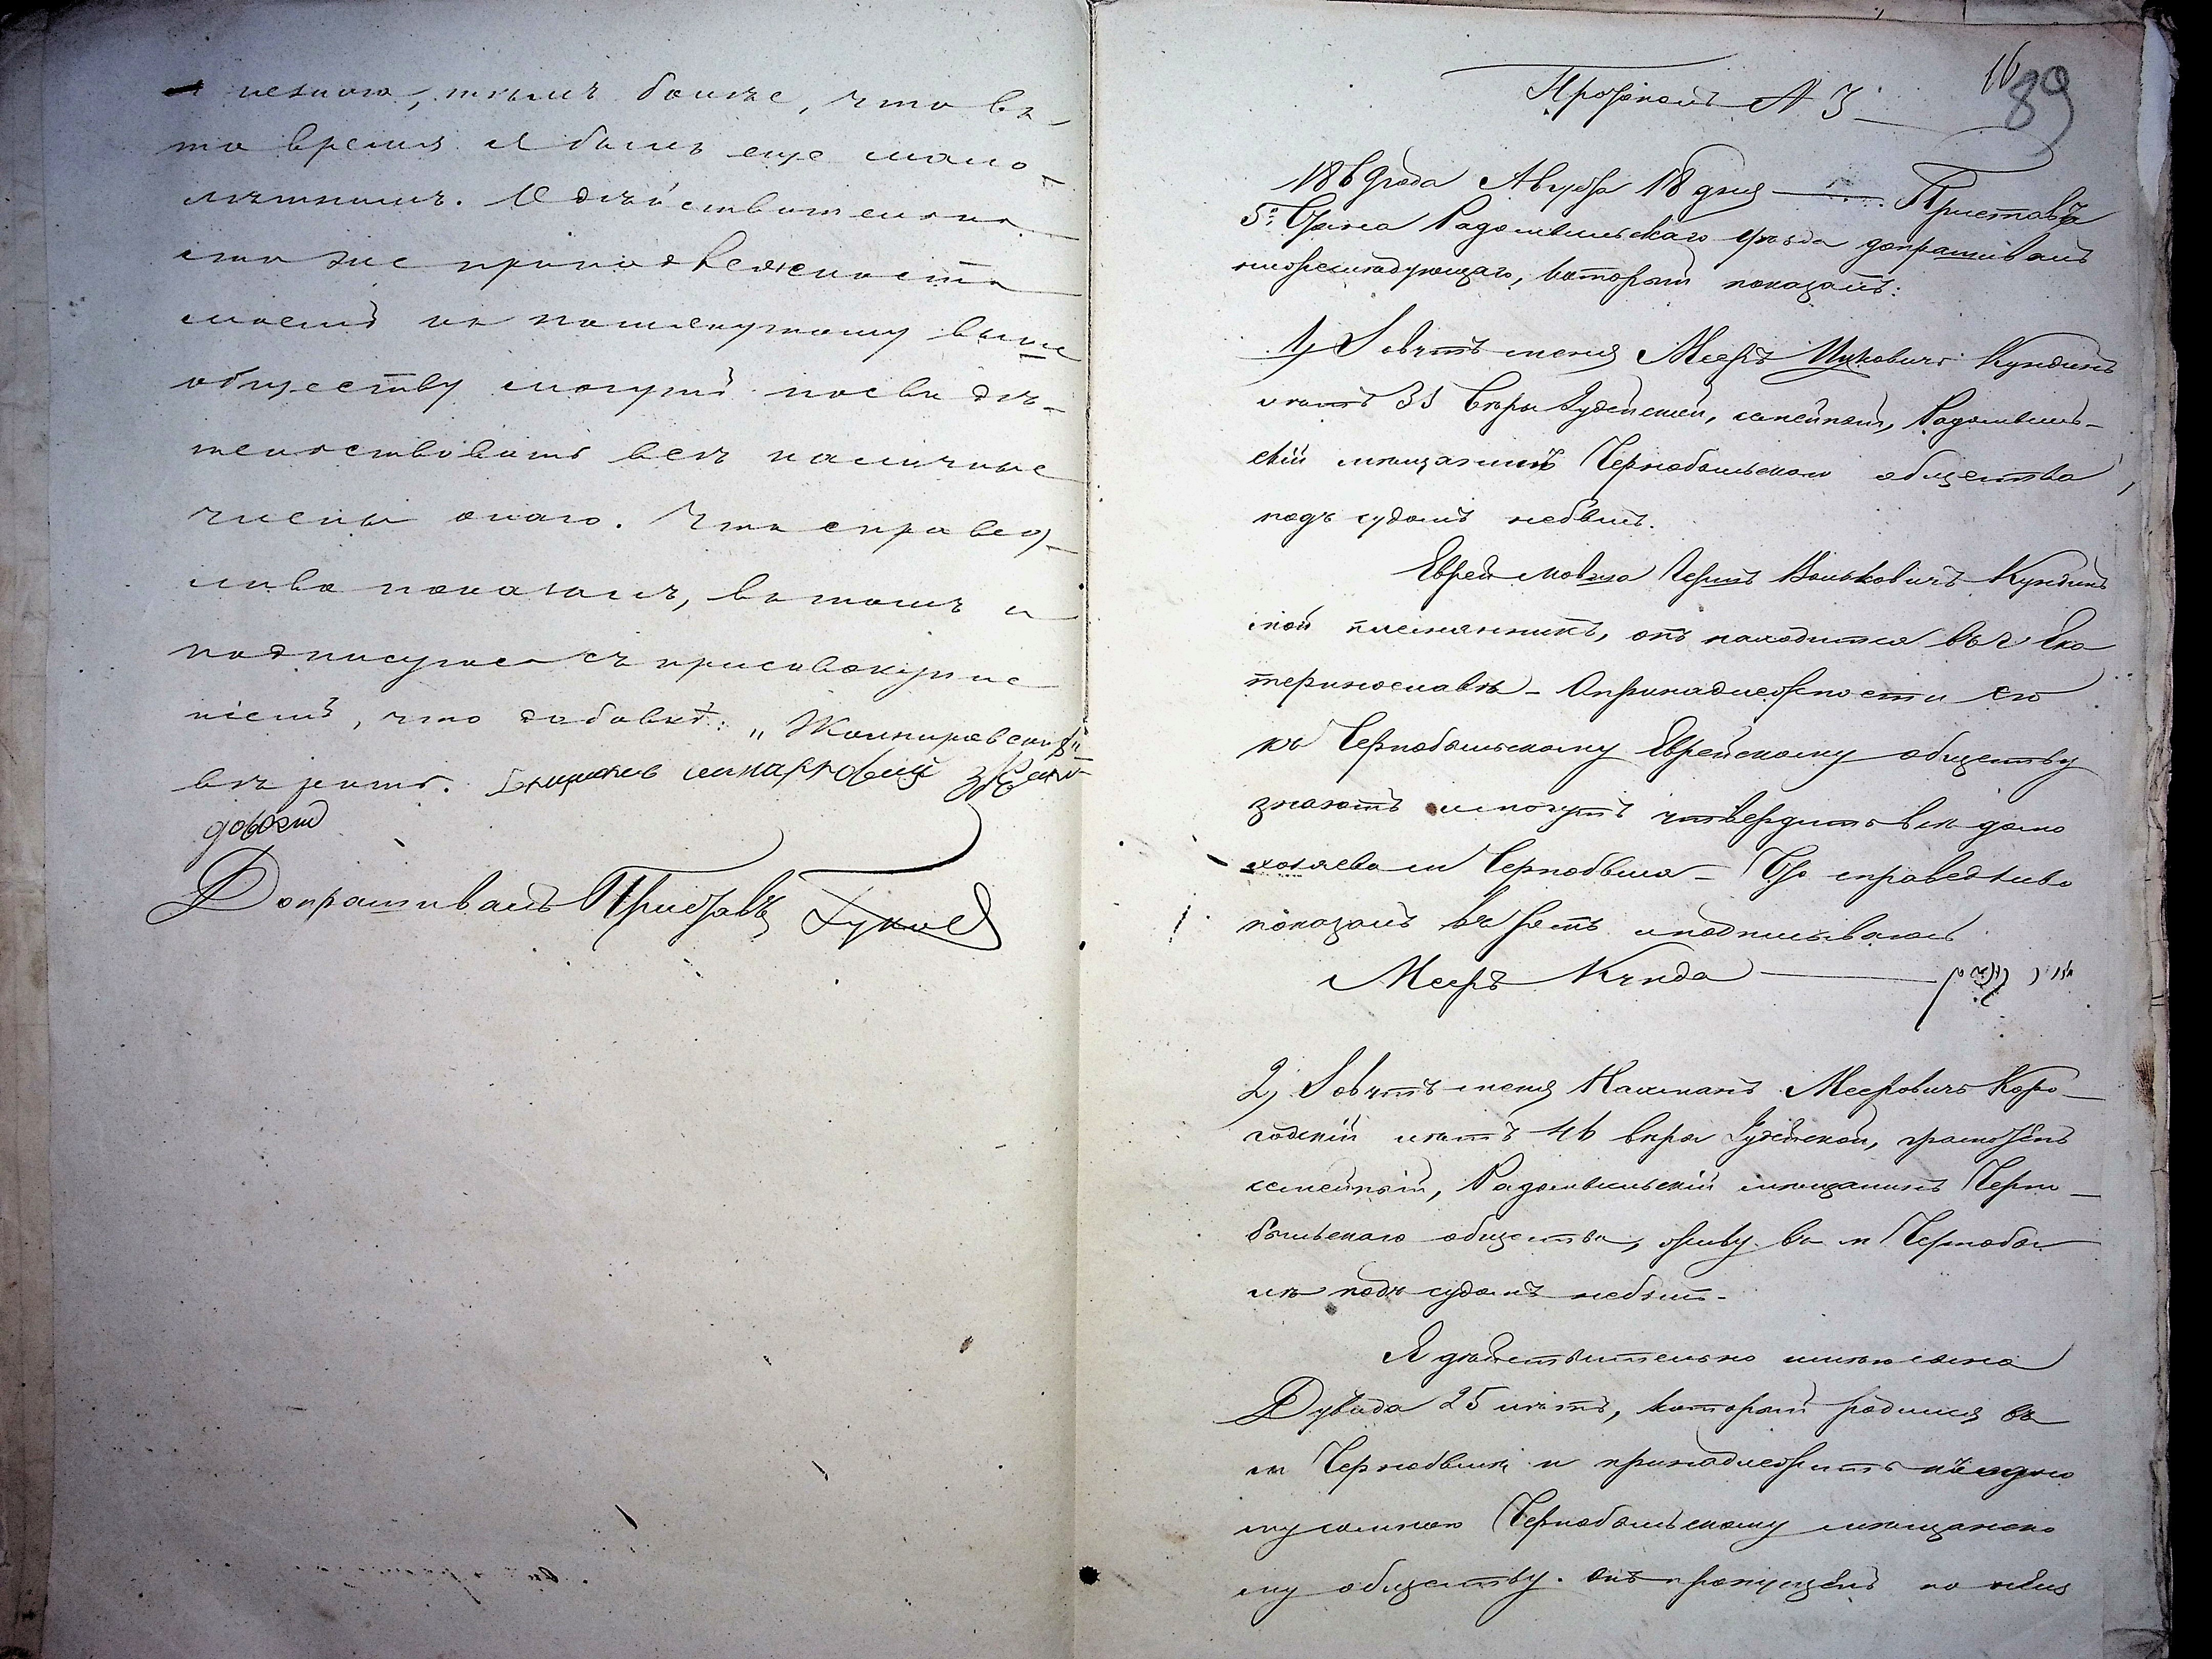 тѣмъ болѣе, что въ
то время я былъ еще мало-
лѣтнимъ. О дѣйствительно
сти же принадлежности
моей къ помянутому выше
обществу могутъ посвидѣ-
тельствовать всѣ наличные
члены онаго. Что справед-
ливо показалъ, въ томъ и
подписуюсь съ присовокупле
ніемъ, что добавка: „Жолнировскій"
вѣрить.
Допрашивалъ Приставъ
16
89
Протоколъ № 3
1869 года Августа 18 дня Приставъ
5го Стана Радомысльскаго уѣзда допрашивалъ
нижеслѣдующаго, который показалъ:
1, Зовутъ меня Мееръ Ицковичъ Кундинъ
лѣтъ 35 вѣры Іудейской, семейный, Радомысль-
скій мѣщанинъ Чернобыльскаго общества,
подъ судомъ небылъ.
Еврей Мовша Герш Вольковичъ Кундинъ
мой племянникъ, онъ находится въ г Ека
теринославѣ - О принадлежности его
къ Чернобыльскому Еврейскому обществу
знаютъ и могутъ утвердить всѣ домо
хозяева м Чернобыля - Что справедливо
показалъ въ томъ и подписываюсь
Мееръ Кунда
2, Зовутъ меня Нахманъ Мееровичъ Коро-
годскій лѣтъ 46 вѣры Іудейской, грамотенъ
семейный, Радомысльскій мѣщанинъ Черно-
быльскаго общества, живу въ м Чернобы
лѣ подъ судомъ небылъ.
Я дѣйствительно имѣю сына
Дувида 25 лѣтъ, который родился въ
м Чернобылѣ и принадлежитъ къ
Чернобыльскому мѣщанско
му обществу. онъ пропущенъ по